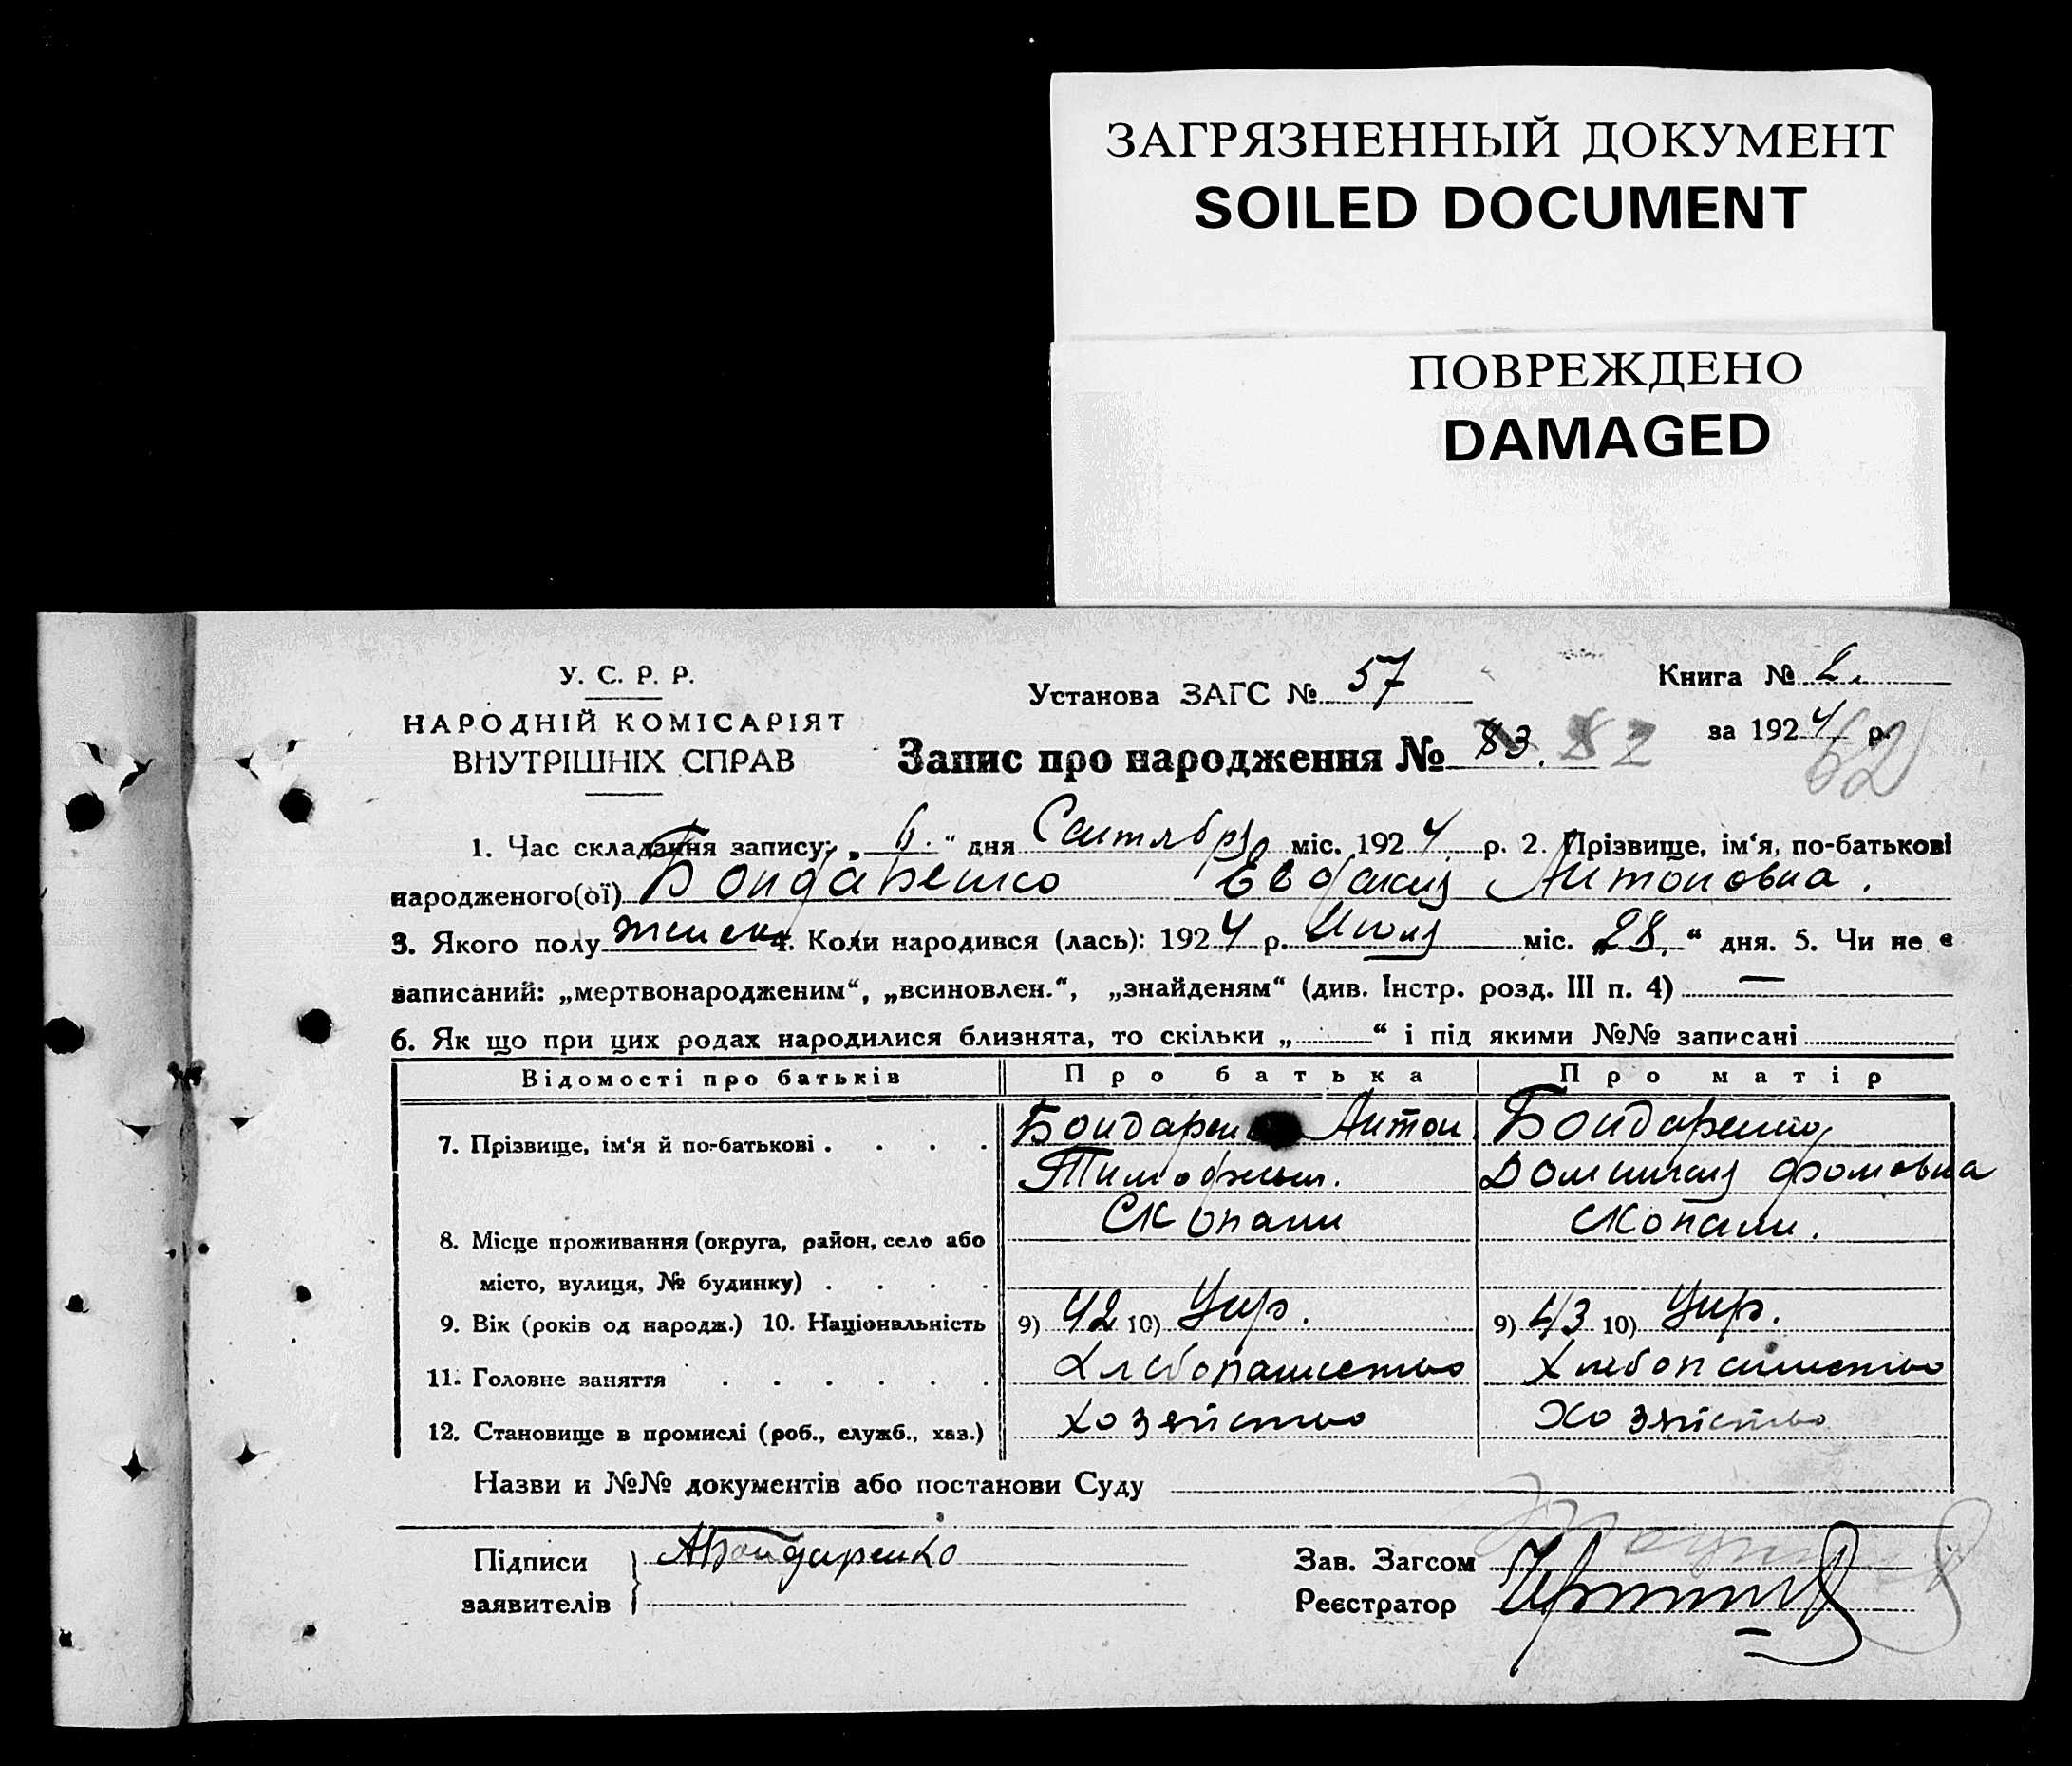 ЗАГРЯЗНЕННЫЙ ДОКУМЕНТ
SOILED DOCUMENT
ПОВРЕЖДЕНО
DAMAGED
У. С. Р. Р.
НАРОДНІЙ КОМІСАРІЯТ
ВНУТРІШНІХ СПРАВ
Установа ЗАГС № 57
Книга № 2.
за 1924 р.
62
Запис про народження № 83. 82
1. Час складання запису: „ 6. “ дня Сентября міс. 1924 р. 2. Прізвище, ім‘я, по-батькові
народженого(ої) Бондаренко Евдокия Антоновна.
3. Якого полу женск 4. Коли народився (лась): 1924 р. Июля міс. „28.“ дня. 5. Чи не є
записаний: „мертвонародженим“, „всиновлен.“, „знайденям“ (див. Інстр. розд. III п. 4) —
6. Як що при цих родах народилися близнята, то скільки „ “ і під якими №№ записані
Відомості про батьків Про батька Про матір
7. Прізвище, ім‘я й по-батькові . . . . Бондарен Антон Бондаренко
Тимофеев. Домникия Фомовна
8. Місце проживання (округа, район, село або Скопани Скопани.
місто, вулиця, № будинку) . . . .
9. Вік (років од народж.) 10. Національність 9) 42 10) Укр. 9) 43 10) Укр.
11. Головне заняття . . . . . . Хлебопашество Хлебопашество
12. Становище в промислі (роб., служб., хаз.) Хозяйство Хозяйство
Назви и №№ документів або постанови Суду
Підписи АБондаренко Зав. Загсом
заявителів Реєстратор